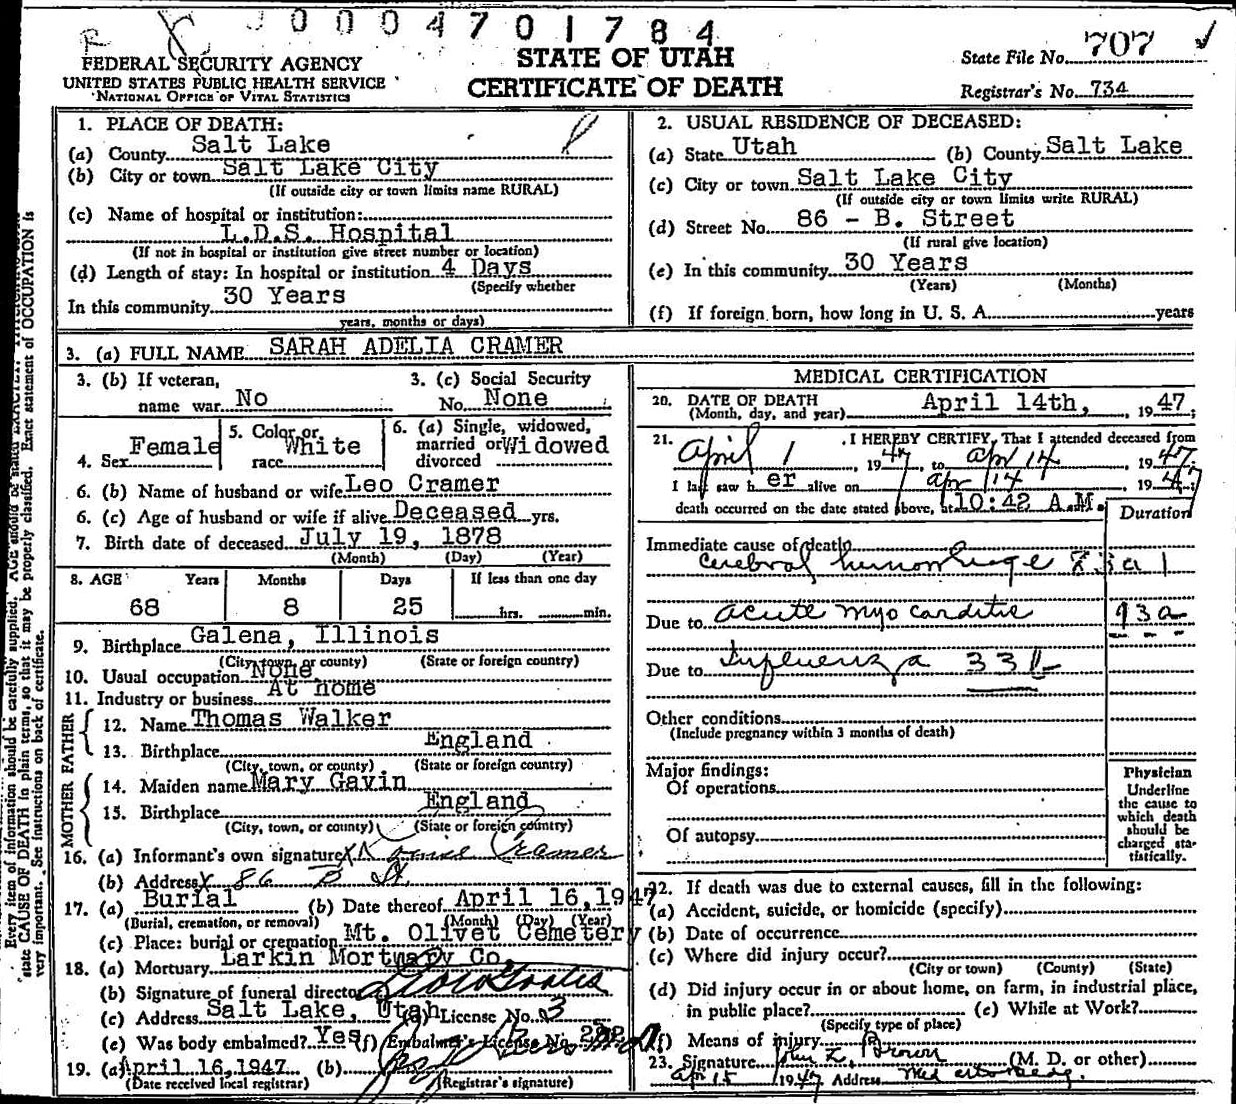 R 0004701784
FEDERAL SECURITY AGENCY
UNITED STATES PUBLIC HEALTH SERVICE
NATIONAL OFFICE OF VITAL STATISTICS
STATE OF UTAH
CERTIFICATE OF DEATH
State File No. 707
Registrar's No. 734
1. PLACE OF DEATH:
(a) County Salt Lake
(b) City or town Salt Lake City
(If outside city or town limits name RURAL)
(c) Name of hospital or institution:
L.D.S. Hospital
(If not in hospital or institution give street number or location)
(d) Length of stay: In hospital or institution 4 Days
(Specify whether
In this community 30 Years
years, months or days)
2. USUAL RESIDENCE OF DECEASED:
(a) State Utah (b) County Salt Lake
(c) City or town Salt Lake City
(If outside city or town limits write RURAL)
(d) Street No. 86 - B. Street
(If rural give location)
(e) In this community 30 Years
(Years) (Months)
(f) If foreign born, how long in U. S. A. years
3. (a) FULL NAME SARAH ADELIA CRAMER
3. (b) If veteran,
name war No
3. (c) Social Security
No. None
4. Sex Female
5. Color or
race White
6. (a) Single, widowed,
married or Widowed
divorced
6. (b) Name of husband or wife Leo Cramer
6. (c) Age of husband or wife if alive Deceased yrs.
7. Birth date of deceased July 19, 1878
(Month) (Day) (Year)
8. AGE Years Months Days If less than one day
68 8 25 hrs. min.
9. Birthplace Galena, Illinois
(City, town, or county) (State or foreign country)
10. Usual occupation None
11. Industry or business At home
FATHER
12. Name Thomas Walker
13. Birthplace England
(City, town, or county) (State or foreign country)
MOTHER
14. Maiden name Mary Gavin
15. Birthplace England
(City, town, or county) (State or foreign country)
16. (a) Informant's own signature X Louise Cramer
(b) Address X 86 B St
17. (a) Burial (b) Date thereof April 16, 1947
(Burial, cremation, or removal) (Month) (Day) (Year)
(c) Place: burial or cremation Mt. Olivet Cemetery
18. (a) Mortuary Larkin Mortuary Co.
(b) Signature of funeral director
(c) Address Salt Lake, Utah (d) License No. 3
(e) Was body embalmed? Yes (f) Embalmer's License No.
19. (a) April 16, 1947 (b)
(Date received local registrar) (Registrar's signature)
MEDICAL CERTIFICATION
20. DATE OF DEATH
(Month, day, and year) April 14th, , 1947;
21. , I HEREBY CERTIFY, That I attended deceased from
April 1 , 1947, to Apr 14 , 1947
I last saw her alive on Apr 14 , 1947;
death occurred on the date stated above, at 10:42 A.M.
Duration
Immediate cause of death
Cerebral hemorrhage 83a 1
Due to acute myocarditis 93a
Due to Influenza 33b
Other conditions
(Include pregnancy within 3 months of death)
Major findings:
Of operations
Of autopsy
Physician
Underline
the cause to
which death
should be
charged sta-
tistically.
22. If death was due to external causes, fill in the following:
(a) Accident, suicide, or homicide (specify)
(b) Date of occurrence
(c) Where did injury occur?
(City or town) (County) (State)
(d) Did injury occur in or about home, on farm, in industrial place,
in public place? (e) While at Work?
(Specify type of place)
(f) Means of injury
23. Signature John Z. Brown (M. D. or other)
Apr 15 1947 Address Med arts bldg.
Every item of information should be carefully supplied. AGE should be stated EXACTLY.
state CAUSE OF DEATH in plain terms, so that it may be properly classified. Exact statement of OCCUPATION is
very important. See instructions on back of certificate.